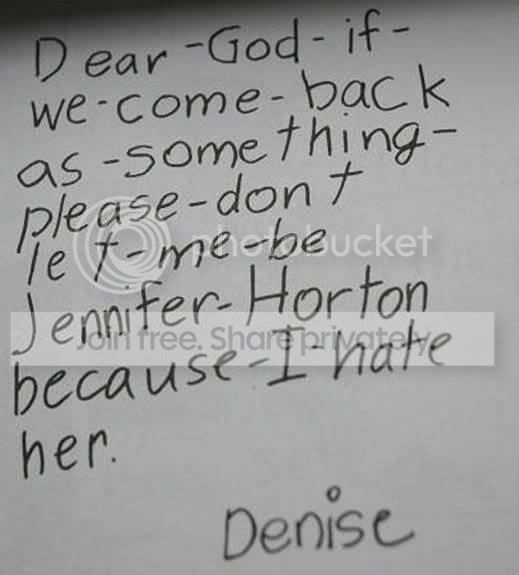 Dear-God-if-
we-come-back
as-something-
please-don't
let-me-be
photobucket
Jennifer-Horton
Join free. Share privately.
because-I-hate
her.
Denise